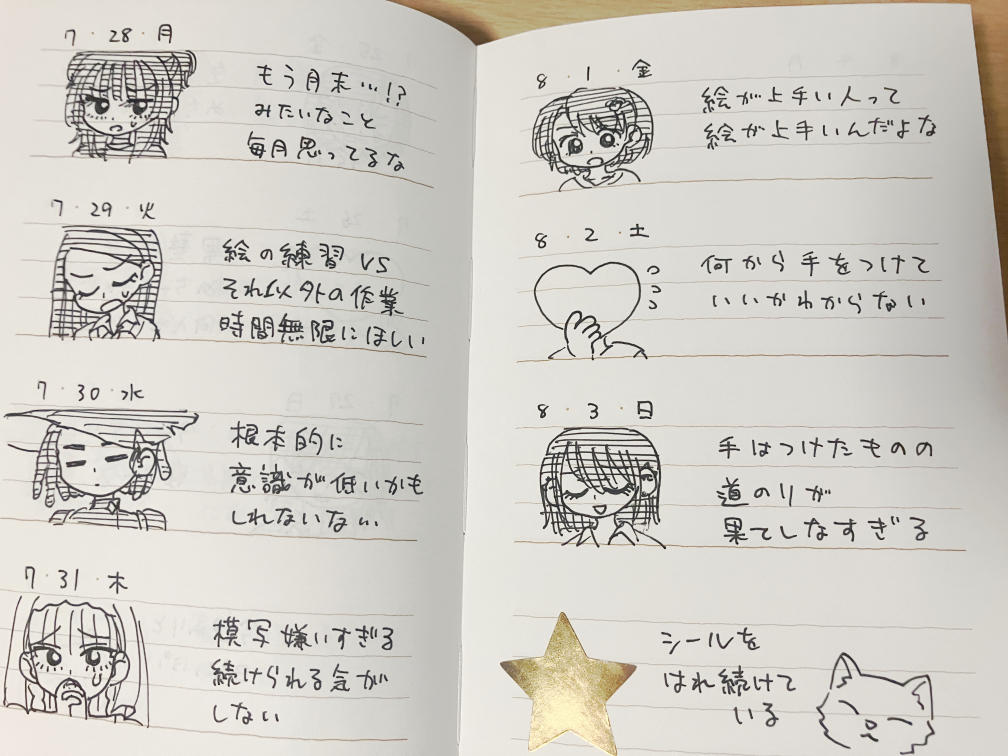 7・28・月
もう月末…!?
みたいなこと
毎月思ってるな
7・29・火
絵の練習 VS
それ以外の作業
時間無限にほしい
7・30・水
根本的に
意識が低いかも
しれないない
7・31・木
模写嫌いすぎる
続けられる気が
しない
8・1・金
絵が上手い人って
絵が上手いんだよな
8・2・土
何から手をつけて
いいかわからない
8・3・日
手はつけたものの
道のりが
果てしなすぎる
シールを
はれ続けて
いる